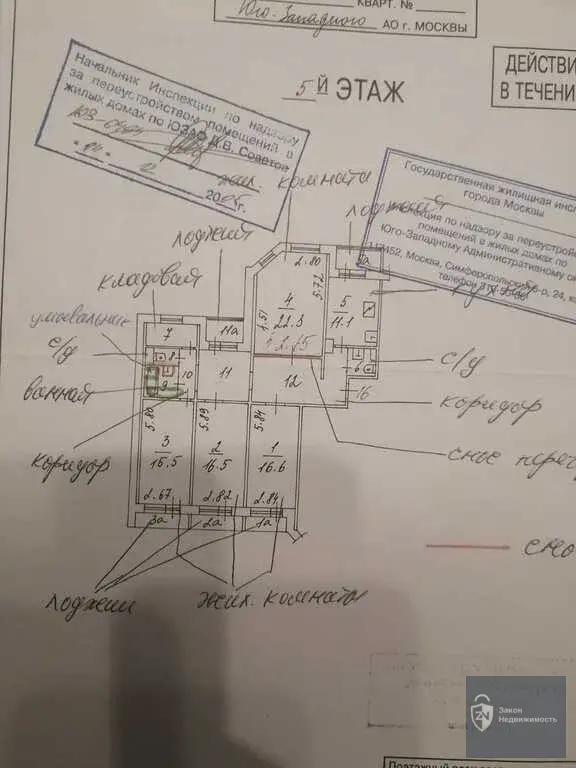 КВАРТ. №
Юго-Западного АО г. МОСКВЫ
5й ЭТАЖ
ДЕЙСТВИ
В ТЕЧЕНИ
Начальник Инспекции по надзору
за переустройством помещений в
жилых домах по ЮЗАО И.В. Советов
2005г.
Государственная жилищная инс
города Москвы
Инспекция по надзору за переустройс
помещений в жилых домах по
Юго-Западному Административному ок
117452, Москва, Симферопольский б-р, 24, к
телефон
жил. комната
лоджия
лоджия
кладовая
умывальник
с/у
ванная
коридор
кухня
с/у
коридор
снос перег
снос
лоджии
жил. комнаты
2.80
5.72
4.51
4
22.3
5
11.1
7
11а
8
9
10
11
12
6
16
5.80
5.89
5.84
3
15.5
2
16.5
1
16.6
2.67
2.82
2.84
3а
2а
1а
Закон
Недвижимость